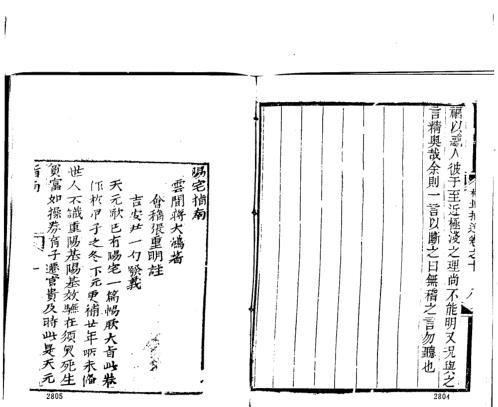 禍以惑人彼于至近極淺之理尚不能明又況與之
言精奧哉余則一言以斷之曰無稽之言勿聽也
卷之十 八
2804
陽宅指南
雲間蔣大鴻著
會稽張重明註
吉安廿一勺發義
天元歌已有陽宅一篇暢厥大旨此卷
作於甲子之冬下元更補廿年所未備
世人不識重陽基陽基效驗在須臾死生
貧富如操券育子遷官貴及時此是天元
2805